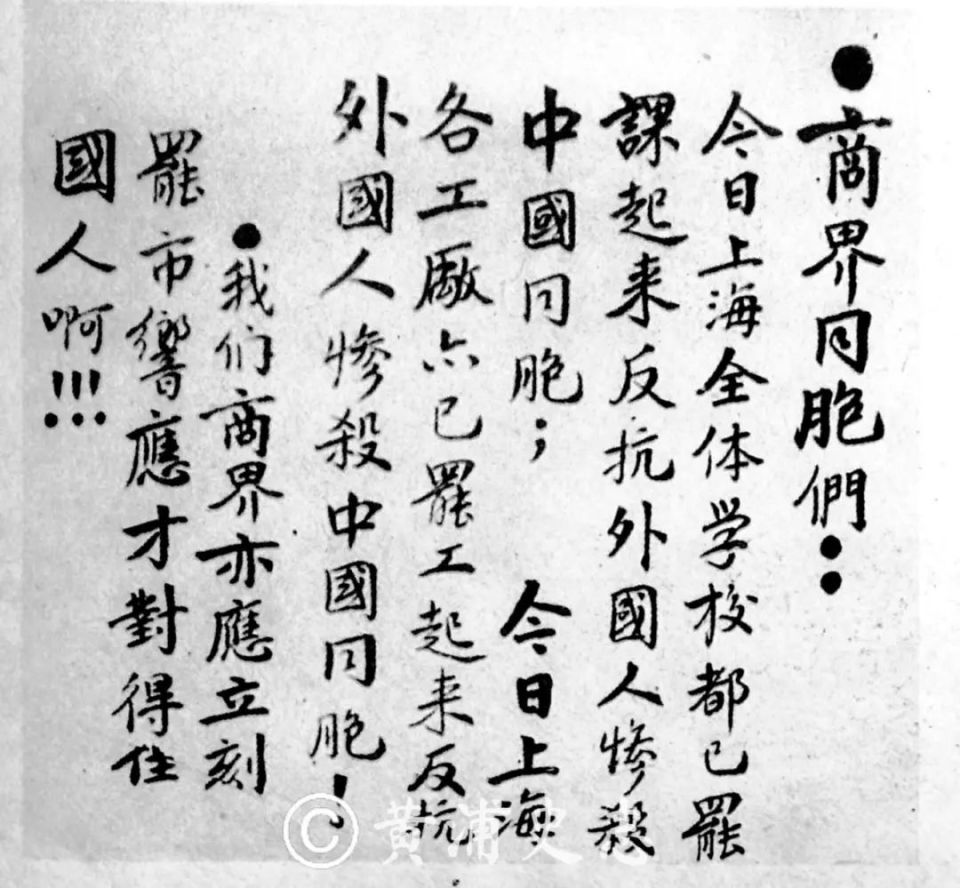 ●商界同胞們：
今日上海全体学校都已罷
課起来反抗外國人惨殺
中國同胞；今日上海
各工廠亦已罷工起来反抗
外國人惨殺中國同胞！
●我们商界亦應立刻
罷市響應才對得住
國人啊!!!
©黄浦史志